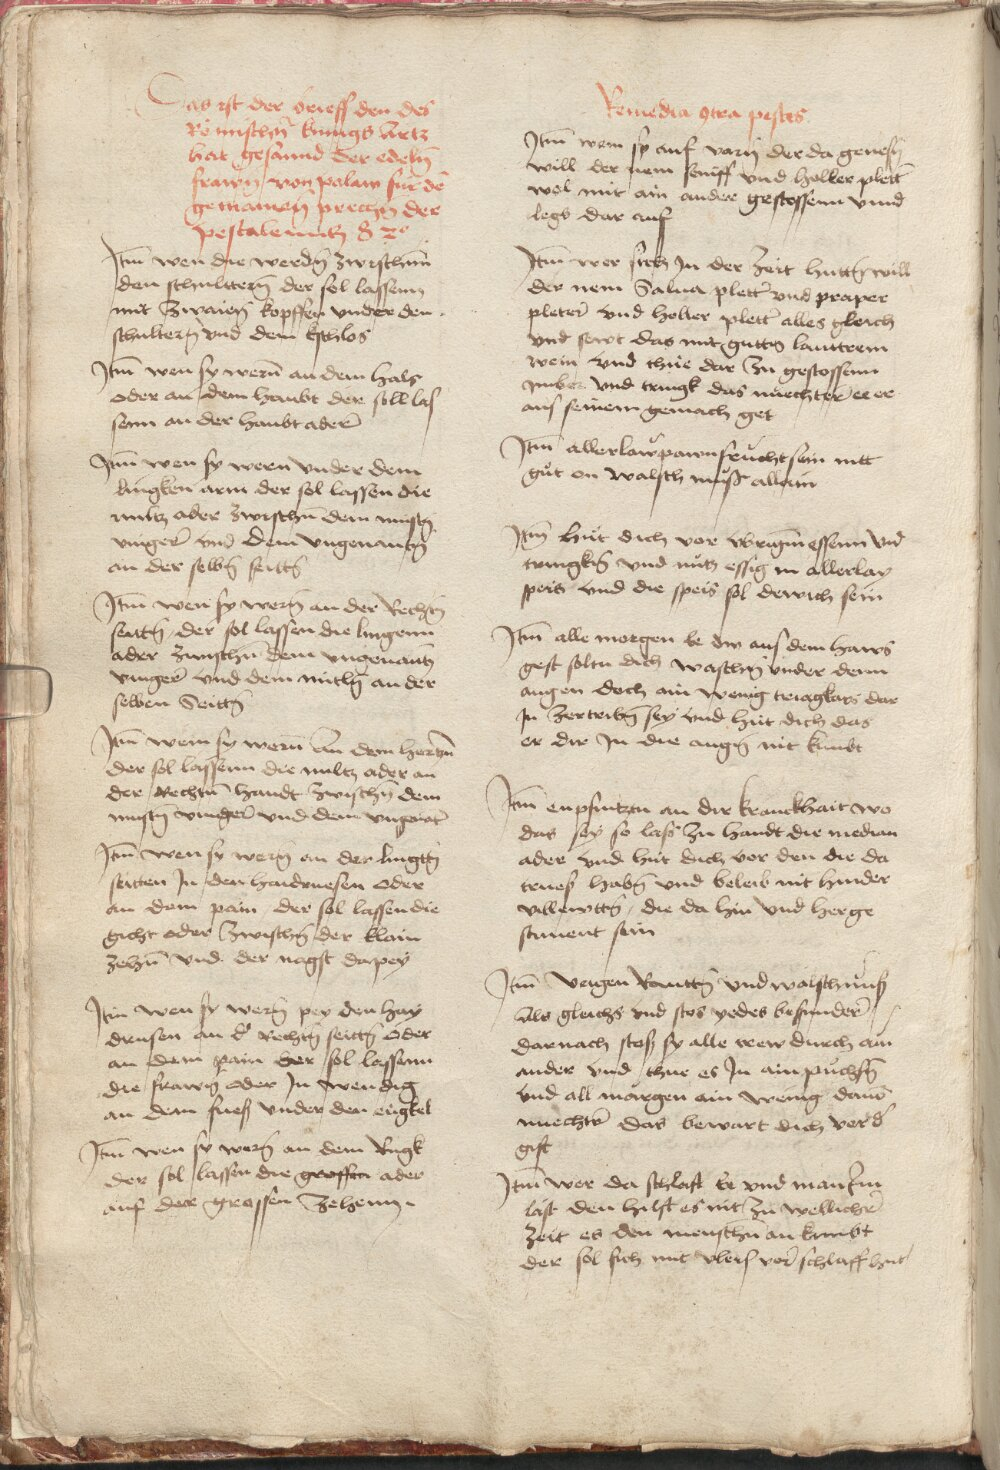 Das ist der brieff den des
Römischn kunigs Artz
hat gesannd der edeln
frawn von polan fur de
gemainen prechn der
pestalenntz &c
Itm wen die werdn zwischnn
den schulttern der sol lassenn
mit zwaien kopffen vnder den
schultern vnd dem
Itm wen sy wern an dem hals
oder an dem haubt der soll las
senn an der haubt ader
Itm wen sy wern vnder dem
lingken arm der sol lassen die
miltz ader zwischn dem mistn
vinger vnd dem vngenantn
an der selbn seittn
Itm wen sy wern an der Rechtn
seittn der sol lassen die lungenn
ader zwischn dem vngenantn
vinger vnd dem mitln an der
selben Seittn
Itm wenn sy wern An dem hertzn
der sol lassenn die miltz ader an
der Rechtn handt zwischn dem
mistn vinger vnd dem
Itm wen sy wern an der lingttn
seitten In den haidruesen oder
an dem pain der sol lassen die
gicht oder zwischn der klain
zehn vnd der nagst dapey
Itm wen sy wern pey den hay
druesen an d' Rechtn seittn oder
an dem pain der sol lassenn
die frawn oder In wendig
an dem fueß vnder den engkel
Itm wen sy wern an dem Rugk
der sol lassen die grossen ader
auf der grossen zehenn
Remedia 9tra pestis
Itm wem sy auf varn der da genesn
will der nem senff vnd holler plett
wol mit ain ander gestossenn vnnd
legs dar auf
Itm wer sich In der zeit huttn will
der nem Salua plett vnd praper
pleter vnd holler plett alles gleich
vnd sewt das mit guttn lautterm
wein vnd thue dar zu gestossenn
imber vnd tringk das nuechter ee er
aus seinem gemach get
Itm allerlaw pawm frucht sein nit
gut on walsch nuss allain
Itm hut dich vor vbrigm essenn vnd
tringkn vnd nutz essig in allerlay
speis vnd die speis sol dewich sein
Itm alle morgen ee dw aus dem haws
gest soltu dich waschn vnder denn
augen doch ain wenig triaglaps dar
In zertribn sey vnd hut dich das
er dir In die augn nit kumbt
Itm enpfintztu an dir kranckhait wo
das sey so lass zu handt die median
ader vnd hut dich vor den die da
trueß habn vnd beleib nit hinder
den die da hin vnd her ge
stinent sein
Itm Veigen Rauttn vnd walschnuß
Als gleichs vnd stos yedes besunder
darnach stoß sy alle wew durch ain
ander vnd thue es In ain puchsn
vnd all morgen ain wenig dauo
nuechtr das bewart dich vor d'
gift
Itm wer da schlaft ee vnd man Im
läst den hilft es nit zu wellicher
zeit es den menschn an kumbt
der sol sich mit vleis vor schlaff hut